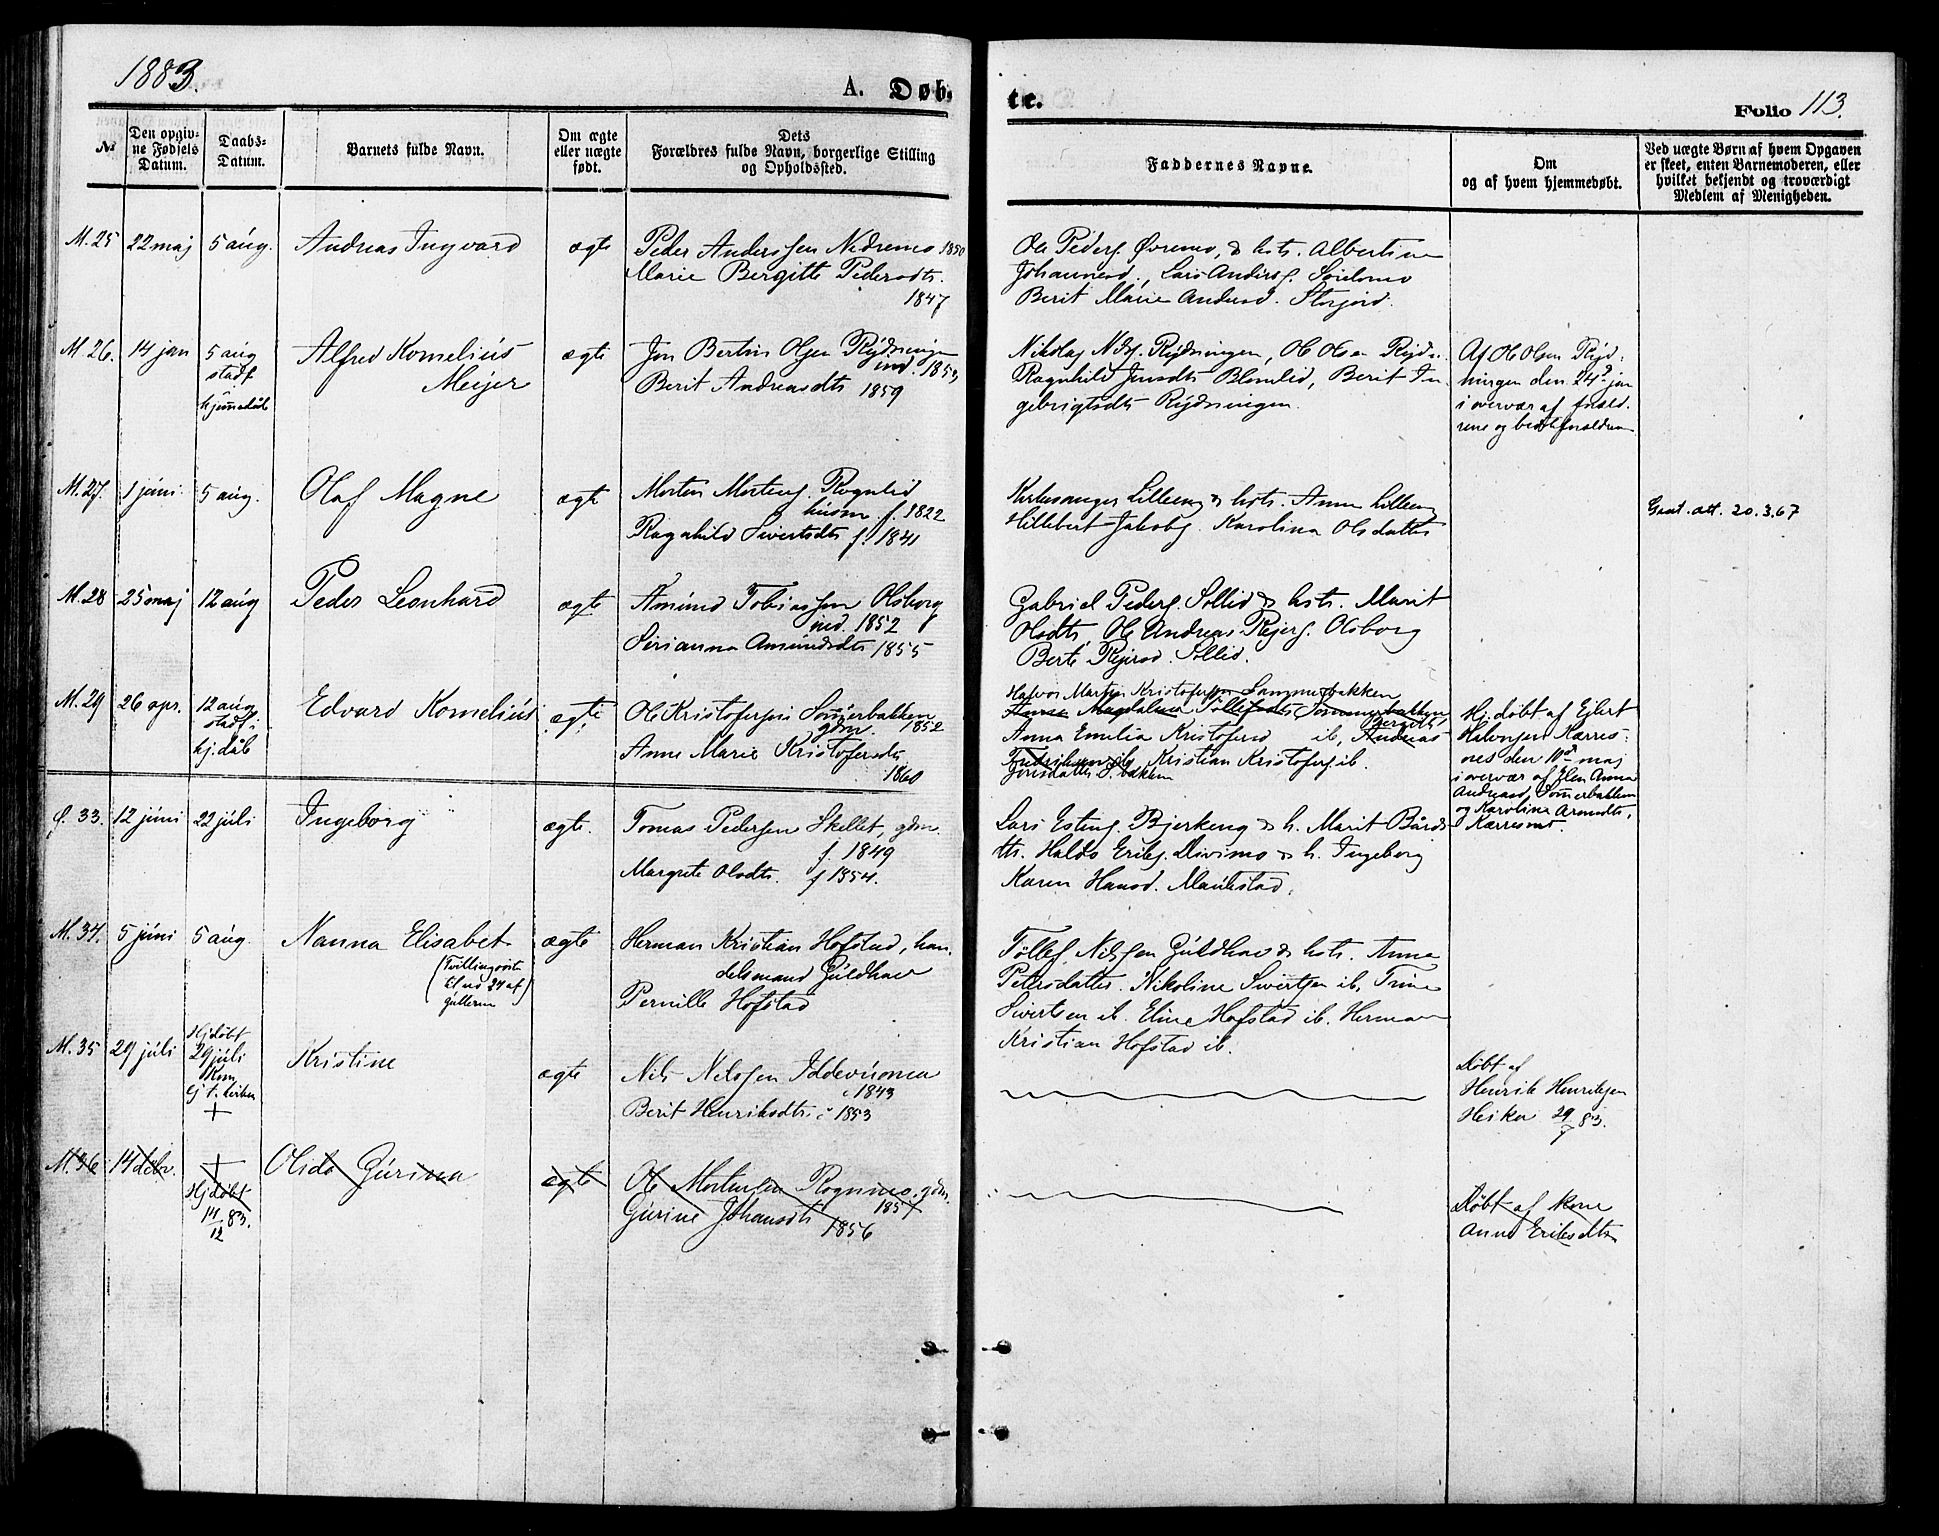 1883.
A. Døb-
te.
Folio 113.
№
Den opgiv-
ne Fødsels
Datum.
Daabs-
Datum.
Barnets fulde Navn.
Om ægte
eller uægte
født.
Dets
Forældres fulde Navn, borgerlige Stilling
og Opholdssted.
Faddernes Navne.
Om
og af hvem hjemmedøbt.
Ved uægte Børn af hvem Opgaven
er skeet, enten Barnemoderen, eller
hvilket bekjendt og troværdigt
Medlem af Menigheden.
M. 25
22 maj
5 aug.
Andreas Ingvard
ægte
Peder Anderssen Nedremo 1850
Marie Bergitte Pedersdtr.
1847
Ole Peders. Øvremo, & hstr. Albertine
Johannesd., Lars Anders.
Berit Marie Andersd. Storjord.
M. 26.
14 jan
5 aug
stadf
hjemmedåb
Alfred Kornelius
Mejer
ægte
Jon Bertin Olsen Rydningen
ind. 1853
Berit Andreasdtr 1859
Nikolaj Nils. Rydningen, Ole Olsen Rydn.
Ragnhild Jonsdtr Blomlid, Berit In-
gebrigtsdtr Rydningen.
Af Ole Olsen Ryd-
ningen den 24d jan
i overvær af foræld-
rene og bedsteforældrene
M. 27.
1 juni
5 aug.
Olaf Magne
ægte
Morten Mortens. Rognlid
husm. f. 1822
Ragnhild Sivertsdtr f. 1841
Kirkesanger Lilleeng & hstr. Anna Lilleeng
Hillebert Jakobs. Karolina Olsdatter
Gaat. att. 20.3.67
M. 28
25 maj
12 aug
Peder Leonhard
ægte
Amund Tobiassen Olsborg
ind. 1852
Sirianna Amundsdtr 1855
Gabriel Peders. Sollid & hstr. Marit
Olsdtr, Ole Andreas Pejers. Olsborg
Berte Pejersd. Sollid.
M. 29
26 apr.
12 aug
stadf.
hj.dåb
Edvard Kornelius
ægte
Ole Kristofersen Sommerbakken
gdm. 1852
Anne Marie Kristofersdtr
1860
Halvor Martin Kristofersen Sommerbakken
Anne Magdalena Tollefsdtr Sommerbakken
Bergitte
Anna Emelia Kristofersd ib, Andreas
Fredriksen ib, Kristian Kristofers. ib.
Jonsdatter S.bakken
Hj. døbt af Ejlert
Halvorsen Kærres-
nes den 10d maj
i overvær af Elen Anna
Andreasd. Sommerbakken
og Karolina Arondtsd.
Kærresnes.
f. 33.
12 juni
22 juli
Ingeborg
ægte.
Tomas Pedersen Skellet, gdm.
f. 1849
Margrete Olsdtr. f 1854.
Lars Estens. Bjerkeng & h. Marit Bårds-
dtr. Haldo Eriks. Divimo & h. Ingeborg
Karen Hansd. Maukstad.
M. 34.
5 juni
5 aug.
Nanna Elisabet
(Tvillingsøster
til no 24 af
gutterne)
ægte
Herman Kristian Hofstad, han-
delsmand Guldhav
Pernille Hofstad
Tollef Nilssen Guldhav & hstr. Anna
Petersdatter. Nikoline Sivertsen ib, Trine
Sivertsen ib. Eline Hofstad ib. Herman
Kristian Hofstad ib.
M. 35
29 juli
Hjdøbt
29 juli
Kom
ej t. kirken
+
Kristine
ægte
Nils Nilssen Iddevuoma
1843
Berit Henriksdtr 1853
Døbt af
Henrik Henriksen
Heika 29/7 83.
M. 36
14 debr.
+
Hjdøbt
14/12 83.
Olida Gurina
ægte
Ole Mortensen Rognmo, gdm.
1857
Gurine Johansdtr 1856
Døbt af kone
Anne Eriksdtr